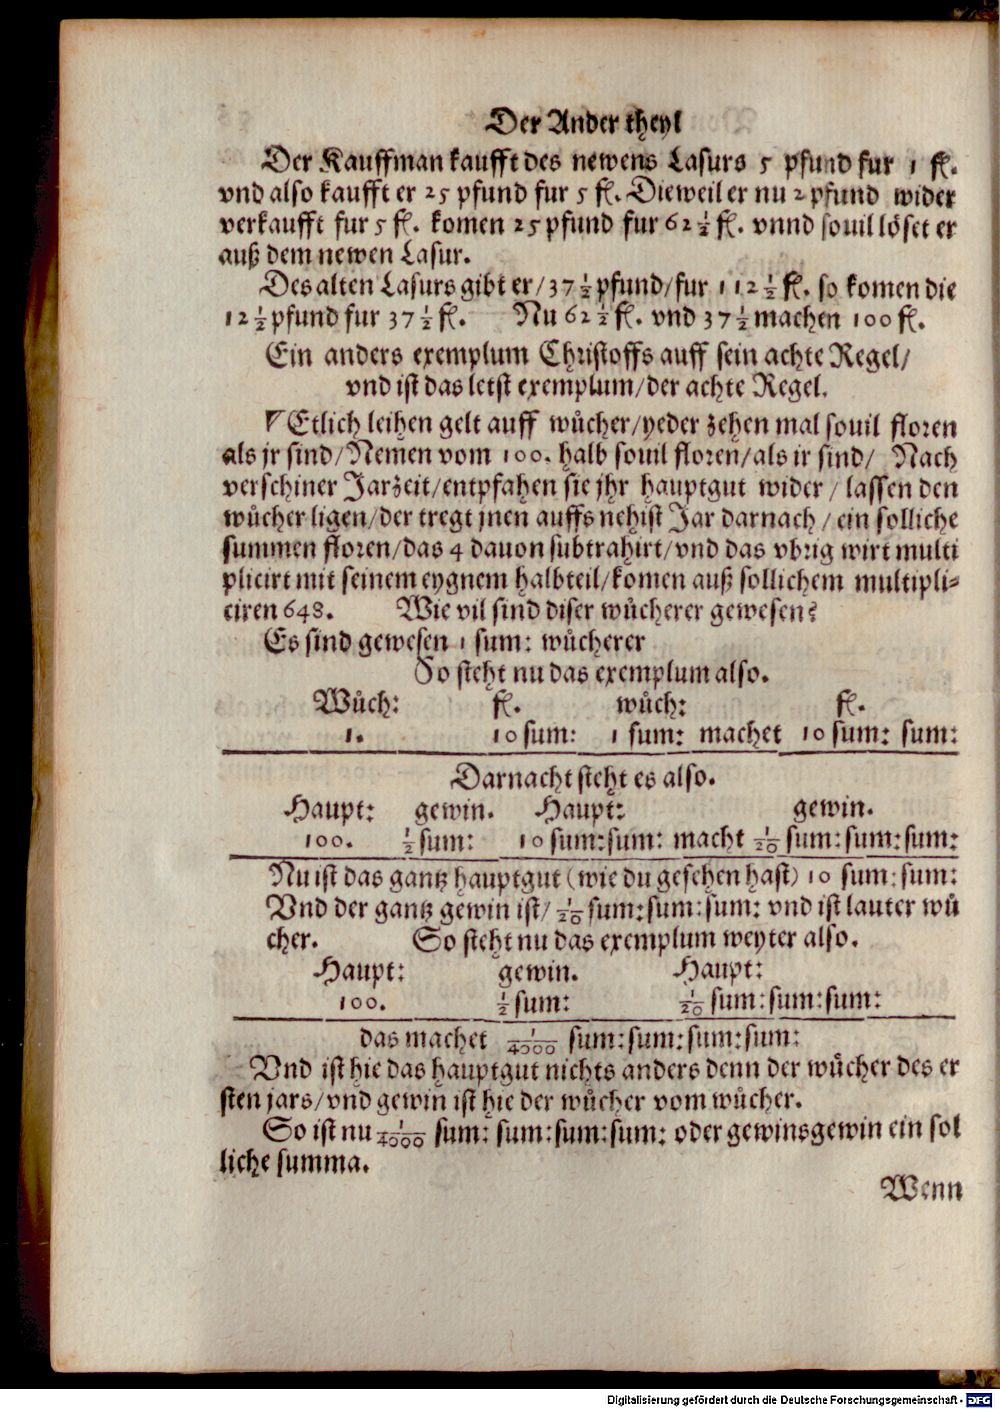 Der Ander theyl
Der Kauffman kaufft des newens Lasurs 5 pfund fur 1 fl.
vnd also kaufft er 25 pfund fur 5 fl. Dieweil er nu 2 pfund wider
verkaufft fur 5 fl. komen 25 pfund fur 62 1/2 fl. vnnd souil löset er
auß dem newen Lasur.
Des alten Lasurs gibt er/37 1/2 pfund/fur 112 1/2 fl. so komen die
12 1/2 pfund fur 37 1/2 fl. Nu 62 1/2 fl. vnd 37 1/2 machen 100 fl.
Ein anders exemplum Christoffs auff sein achte Regel/
vnd ist das letst exemplum/der achte Regel.
Etlich leihen gelt auff wůcher/yeder zehen mal souil floren
als jr sind/Nemen vom 100. halb souil floren/als ir sind/ Nach
verschiner Jarzeit/entpfahen sie jhr hauptgut wider/lassen den
wůcher ligen/der tregt jnen auffs nehist Jar darnach/ein solliche
summen floren/das 4 dauon subtrahirt/vnd das vbrig wirt multi
plicirt mit seinem eygnem halbteil/komen auß sollichem multipli-
ciren 648. Wie vil sind diser wůcherer gewesen?
Es sind gewesen 1 sum: wůcherer
So steht nu das exemplum also.
Wůch: fl. wůch: fl.
1. 10 sum: 1 sum: machet 10 sum: sum:
Darnacht steht es also.
Haupt: gewin. Haupt: gewin.
100. 1/2 sum: 10 sum:sum: macht 1/20 sum:sum:sum:
Nu ist das gantz hauptgut (wie du gesehen hast) 10 sum:sum:
Vnd der gantz gewin ist/ 1/20 sum:sum:sum: vnd ist lauter wů
cher. So steht nu das exemplum weyter also.
Haupt: gewin. Haupt:
100. 1/2 sum: 1/20 sum:sum:sum:
das machet 1/4000 sum:sum:sum:sum:
Vnd ist hie das hauptgut nichts anders denn der wůcher des er
sten jars/vnd gewin ist hie der wůcher vom wůcher.
So ist nu 1/4000 sum: sum:sum:sum: oder gewinsgewin ein sol
liche summa.
Wenn
Digitalisierung gefördert durch die Deutsche Forschungsgemeinschaft - DFG